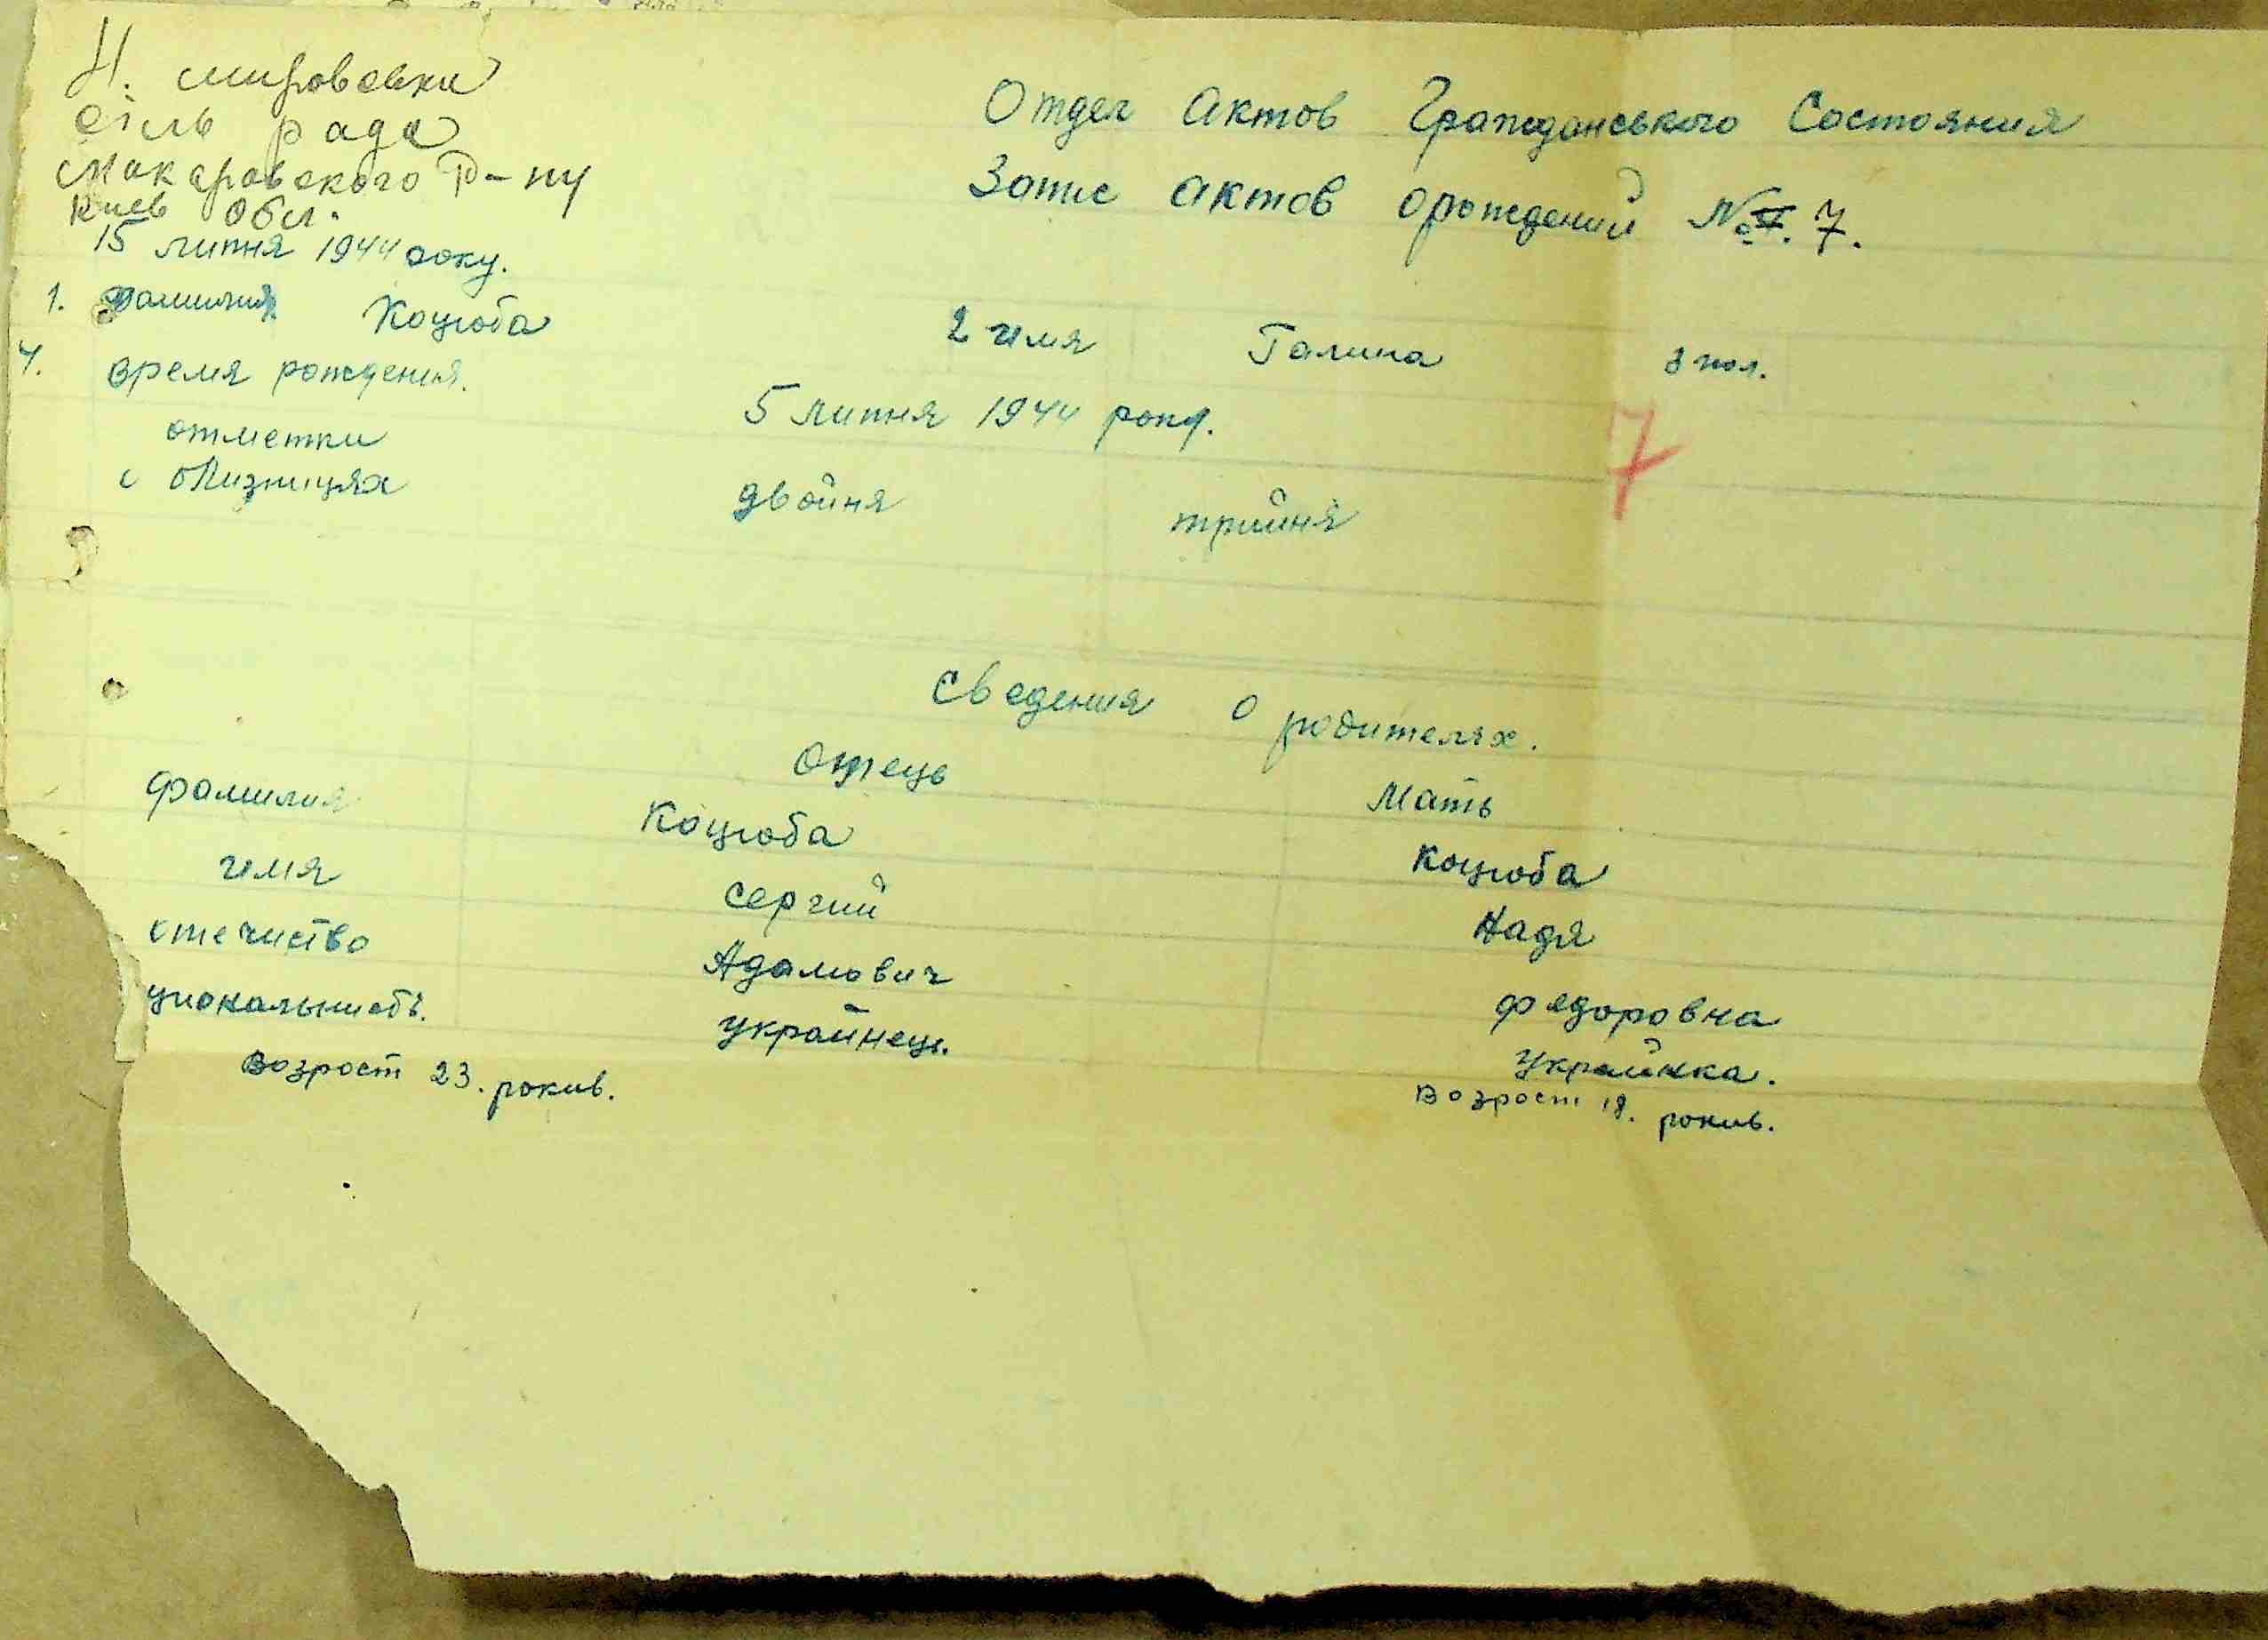 Н. мировски
сіль рада
Макаровского Р-ну
Киев обл.
15 липня 1944 року.
Отдел Актов Гражданського Состояния
Запис актов орождений № 7.
1. фамилия Коцюба 2 имя Галина 3 пол.
4. время рождения. 5 липня 1944 року.
7
отметки
о близницях двойня тройня
Сведения о родителях.
Отець Мать
фамилия Коцюба Коцюба
имя Сергий Надя
отечиство Адамович Федоровна
циональність. Украйнець. Украйнка.
Возраст 23. рокив. Возраст 18. рокив.